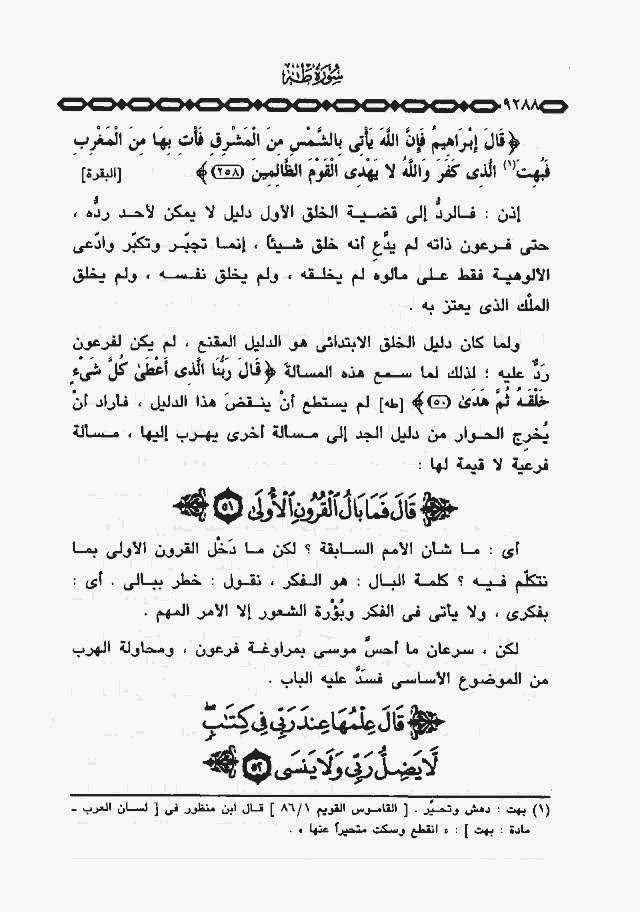 سُورَةُ طَٰهَٰ
٩٢٨٨
﴿ قَالَ إِبْرَاهِيمُ فَإِنَّ اللَّهَ يَأْتِى بِالشَّمْسِ مِنَ الْمَشْرِقِ فَأْتِ بِهَا مِنَ الْمَغْرِبِ
فَبُهِتَ(١) الَّذِى كَفَرَ وَاللَّهُ لا يَهْدِى الْقَوْمَ الظَّالِمِينَ (٢٥٨) ﴾ [البقرة]
إذن : فالردُّ إلى قضية الخلق الأول دليل لا يمكن لأحد ردُّه ،
حتى فرعون ذاته لم يدَّعِ أنه خلق شيئاً ، إنما تجبّر وتكبّر وادّعى
الألوهية فقط على مألوه لم يخلقه ، ولم يخلق نفسه ، ولم يخلق
الملْك الذى يعتز به .
ولما كان دليل الخلق الابتدائى هو الدليل المقنع ، لم يكن لفرعون
ردٌّ عليه ؛ لذلك لما سمع هذه المسألة ﴿ قَالَ رَبُّنَا الَّذِى أَعْطَىٰ كُلَّ شَىْءٍ
خَلْقَهُ ثُمَّ هَدَىٰ (٥٠) ﴾ [طه] لم يستطع أنْ ينقضَ هذا الدليل ، فأراد أنْ
يُخرِج الحوار من دليل الجد إلى مسألة أخرى يهرب إليها ، مسألة
فرعية لا قيمة لها :
قَالَ فَمَا بَالُ ٱلْقُرُونِ ٱلْأُولَىٰ ٥١
أى : ما شأن الأمم السابقة ؟ لكن ما دَخْل القرون الأولى بما
نتكلّم فيه ؟ كلمة البال : هو الفكر ، نقول : خطر ببالى . أى :
بفكرى ، ولا يأتى فى الفكر وبُؤْرة الشعور إلا الأمر المهم .
لكن ، سرعان ما أحسَّ موسى بمراوغة فرعون ، ومحاولة الهرب
من الموضوع الأساسى فسدَّ عليه الباب .
قَالَ عِلْمُهَا عِندَ رَبِّى فِى كِتَٰبٍۖ
لَّا يَضِلُّ رَبِّى وَلَا يَنسَى ٥٢
(١) بهت : دهش وتحيَّر . [ القاموس القويم ٨٦/١ ] قال ابن منظور فى [ لسان العرب -
مادة : بهت ] : « انقطع وسكت متحيراً عنها » .